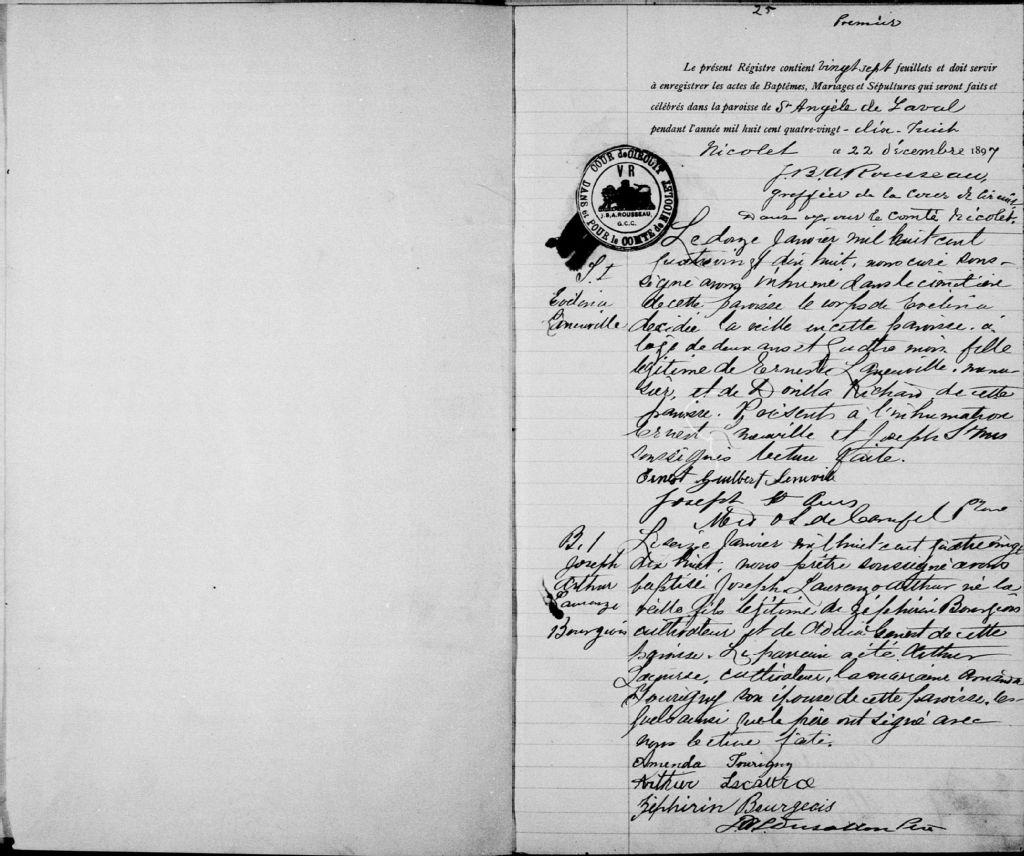 25
Premier
Le présent Régistre contient vingt sept feuillets et doit servir
à enregistrer les actes de Baptêmes, Mariages et Sépultures qui seront faits et
célébrés dans la paroisse de Ste Angèle de Laval
pendant l'année mil huit cent quatre-vingt-dix-huit
Nicolet ce 22 décembre 1897
J.B.A Rousseau,
greffier de la cour de circuit
Dans et pour le comté Nicolet.
COUR de CIRCUIT
DANS et POUR le COMTÉ de NICOLET
VR
J.B.A. ROUSSEAU,
G.C.C.
S. 1
Evelina
Leneuville
Le douze Janvier mil huit cent
quatrevingt dix huit, nous curé sous-
signé avons inhumé dans le cimetière
de cette paroisse le corps de Evelina
décédée la veille en cette paroisse. à
l'age de deux ans et quatre mois fille
légitime de Ernest Leneuville, menui-
sier, et de Donilla Richard de cette
paroisse. Présents à l'inhumation
Ernest neuville et Joseph
soussignés lecture faite.
Ernest Guilbert Lenevile
Joseph
de Canufel Ptre
B. 1
Joseph
Arthur
Laurenzo
Bourgeois
Le seize Janvier mil huit cent quatre vingt
dix huit, nous prêtre soussigné avons
baptisé Joseph Laurenzo Arthur né la
veille fils légitime de Zéphirin Bourgeois
cultivateur et de Addia Benoit de cette
paroisse. Le parrain a été Arthur
Lacourse, cultivateur, la marraine Amanda
Tourigny son épouse de cette paroisse, les-
quels ainsi que le père ont signé avec
nous lecture faite.
Amenda Tourigny
Arthur Lacourse
Zéphirin Bourgeois
Ptre